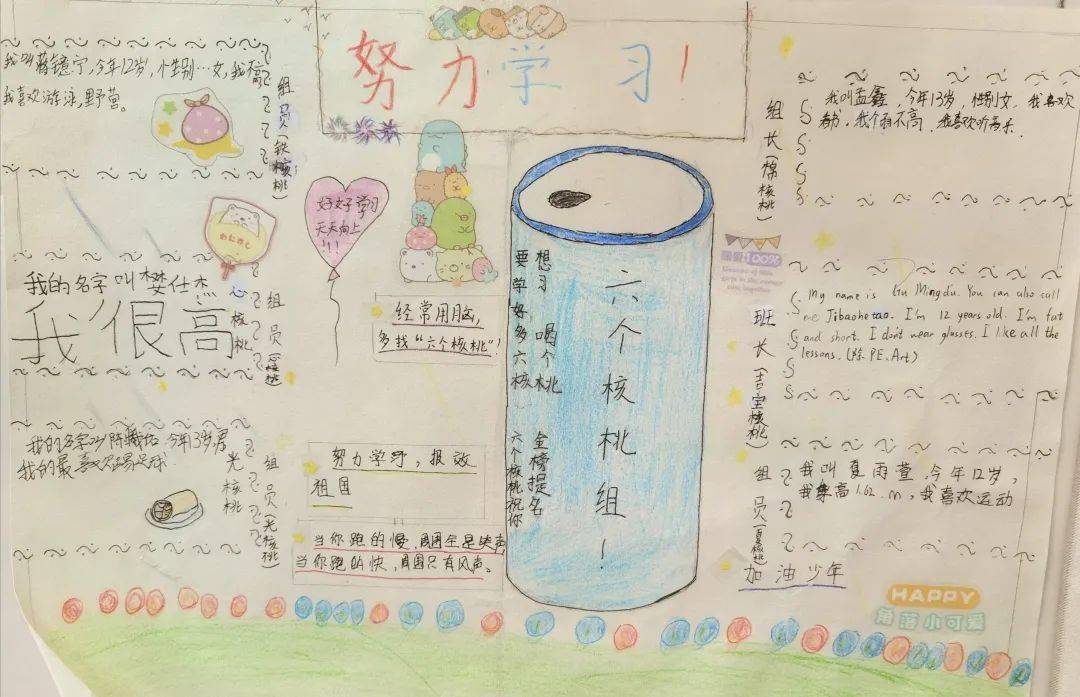 努力学习！
我叫蒋镱宁，今年12岁，性别…女，我不高
我喜欢游泳，野营。
组员（铁核桃）
好好学习
天天向上
!!!
我的名字叫樊仕杰
我很高
心核桃
组员
经常用脑，
多找“六个核桃”！
我的名字叫陈 今年13岁，男
我的最喜欢踢足球
光核桃
组员（光核桃）
努力学习，报效
祖国
当你跑的慢，周围全是笑声
当你跑的快，周围只有风声。
想要学习好
多喝六个核桃
六个核桃祝你
金榜提名
六个核桃组！
组长（棉核桃）
我叫孟鑫，今年13岁，性别女，我喜欢
看书，我个头不高，我喜欢听音乐
100%
班长（吉宝核桃）
My name is Liu Mingdu. You can also call
me Jibaohetao. I'm 12 years old. I'm fat
and short. I don't wear glasses. I like all the
lessons. (除. PE. Art)
组员（夏核桃）
我叫夏雨萱，今年12岁，
我身高1.62.m，我喜欢运动
加油少年
HAPPY
角落小可爱